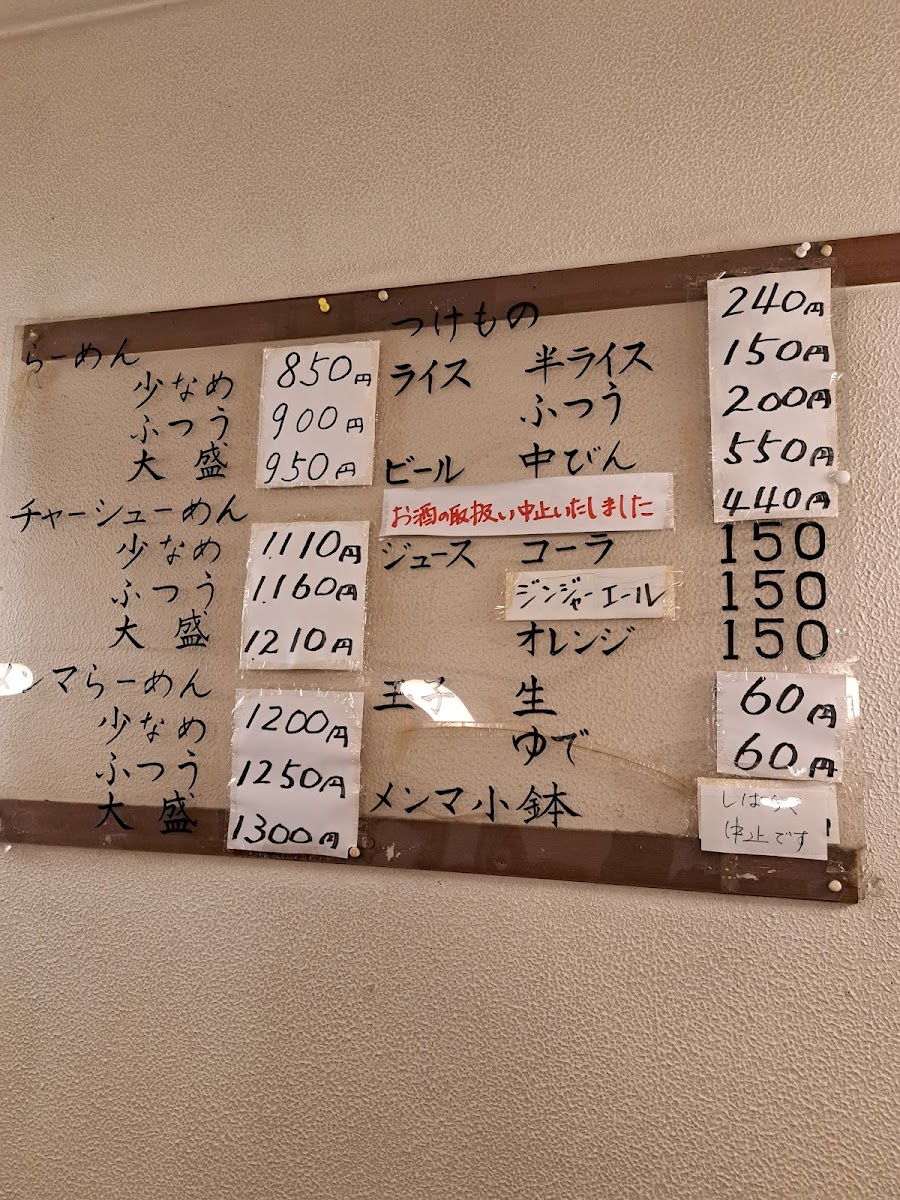 らーめん
少なめ 850円
ふつう 900円
大盛 950円
チャーシューめん
少なめ 1.110円
ふつう 1.160円
大盛 1.210円
ンマらーめん
少なめ 1200円
ふつう 1250円
大盛 1300円
つけもの 240円
ライス 半ライス 150円
ふつう 200円
ビール 中びん 550円
お酒の取扱い中止いたしました 440円
ジュース コーラ 150
ジンジャーエール 150
オレンジ 150
玉子 生 60円
ゆで 60円
メンマ小鉢 しばらく
中止です